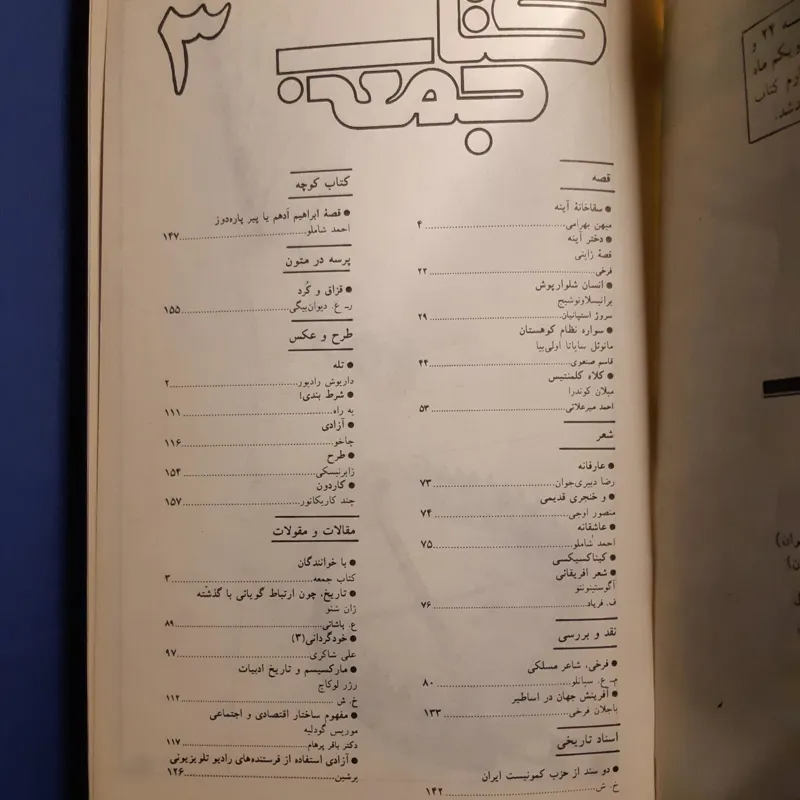 کتاب
جمعه
۳
قصه
● سقاخانهٔ آینه
میهن بهرامی ۴
● دختر آینه
قصهٔ ژاپنی
فرخی ۲۲
● انسان شلوارپوش
برانیسلاونوشیج
سروژ استپانیان ۲۹
● سواره نظام کوهستان
مانوئل ساباتا اولی‌بیا
قاسم صنعوی ۴۴
● کلاه کلمنتیس
میلان کوندرا
احمد میرعلائی ۵۳
شعر
● عارفانه
رضا دبیری‌جوان ۷۳
● و خنجری قدیمی
منصور اوجی ۷۴
● عاشقانه
احمد شاملو ۷۵
● کیتاکسیکسی
● شعر افریقائی
آگوستینونتو
ف. فریاد ۷۶
نقد و بررسی
● فرخی، شاعر مسلکی
م‌ـ ع. سپانلو ۸۰
● آفرینش جهان در اساطیر
باجلان فرخی ۱۳۳
اسناد تاریخی
● دو سند از حزب کمونیست ایران
خ. ش ۱۴۲
کتاب کوچه
● قصهٔ ابراهیم اَدهم یا پیر پاره‌دوز
احمد شاملو ۱۴۷
پرسه در متون
● قزاق و کُرد
ر‌ـ ع. دیوان‌بیگی ۱۵۵
طرح و عکس
● تله
داریوش رادپور ۲
● شرط بندی!
یه راه ۱۱۱
● آزادی
چاخو ۱۱۶
● طرح
زابرنیسکی ۱۵۴
● کاردون
چند کاریکاتور ۱۵۷
مقالات و مقولات
● با خوانندگان
کتاب جمعه ۳
● تاریخ، چون ارتباط گویائی با گذشته
ژان شنو
ع. پاشائی ۸۹
● خودگردانی(۳)
علی شاکری ۹۷
● مارکسیسم و تاریخ ادبیات
رزر لوکاچ
خ. ش ۱۱۲
● مفهوم ساختار اقتصادی و اجتماعی
موریس گودلیه
دکتر باقر پرهام ۱۱۷
● آزادی استفاده از فرستنده‌های رادیو تلویزیونی
برشین ۱۲۶